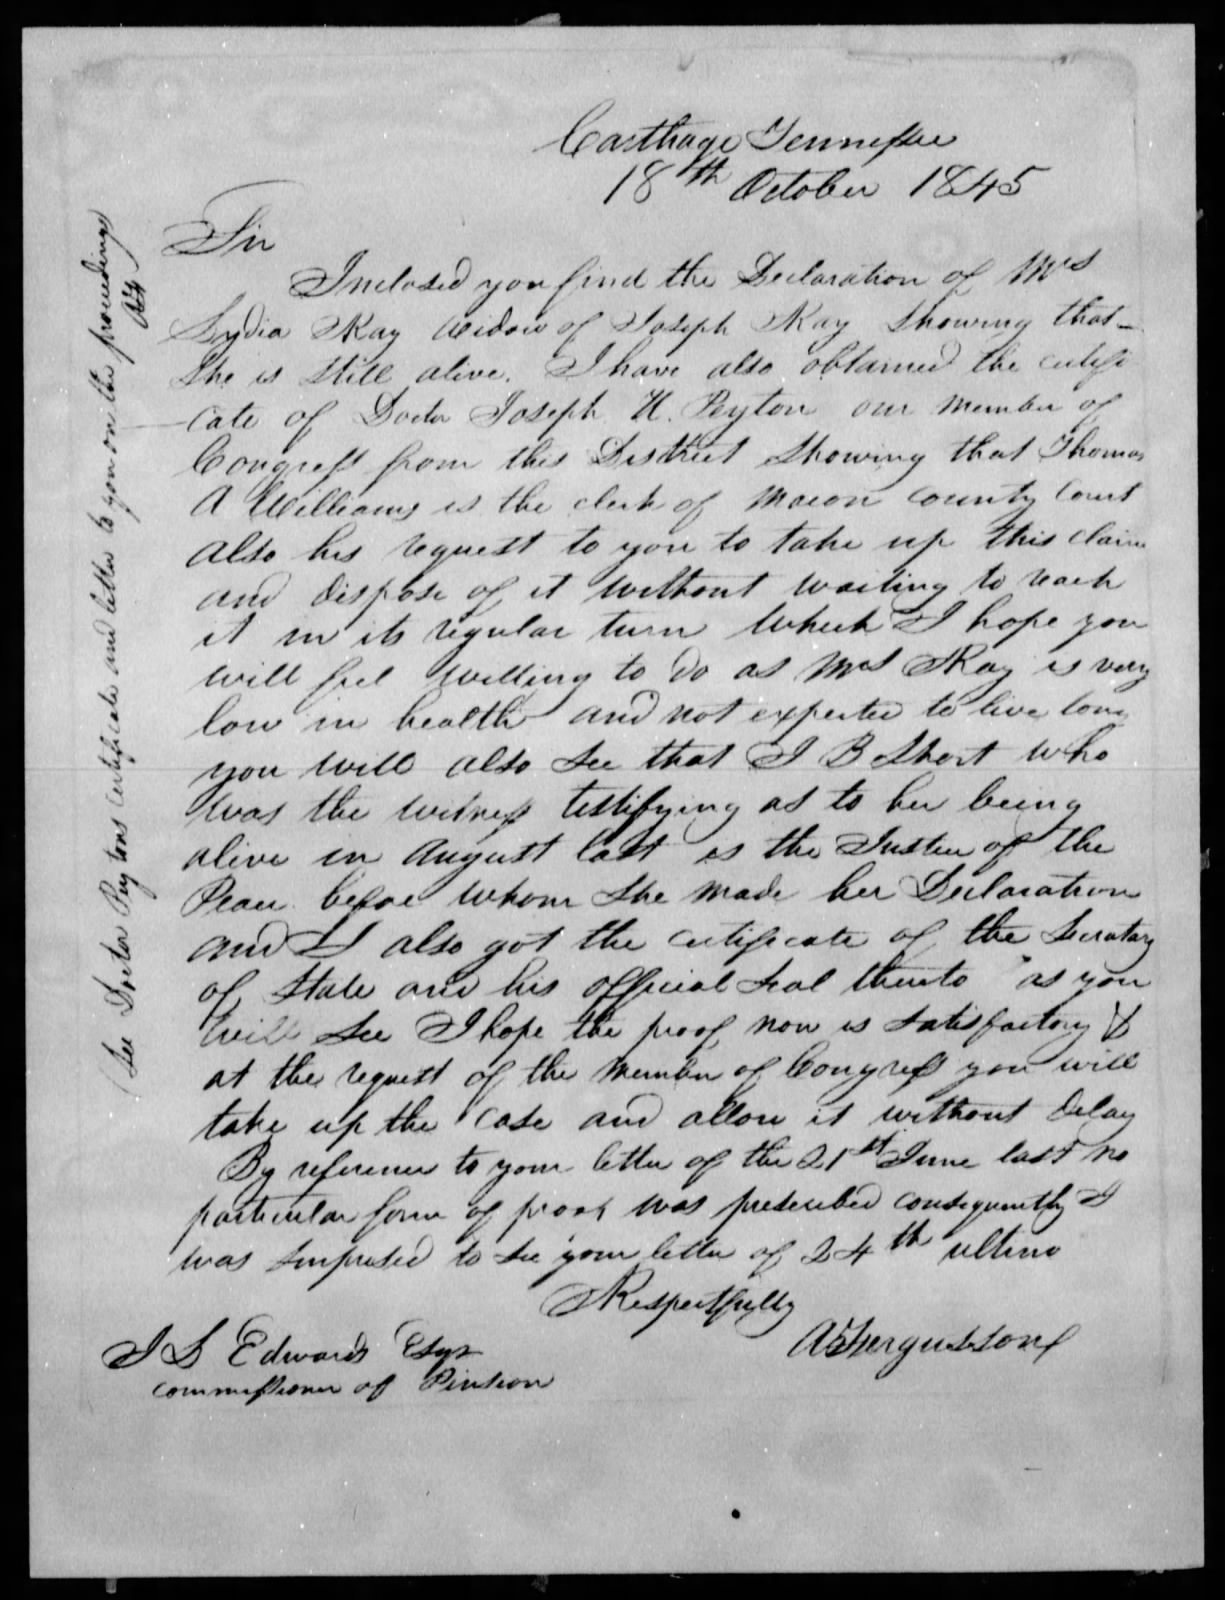 Carthage Tennessee
18th October 1845
Sir
Inclosed you find the Declaration of Mrs
Lydia Kay widow of Joseph Kay Showing that
She is Still alive. I have also obtained the certifi
cate of Doctor Joseph H. Peyton our member of
Congress from this District Showing that Thomas
A Williams is the clerk of Macon County Court
also his request to you to take up this claim
and dispose of it without waiting to reach
it in its regular turn which I hope you
will feel willing to do as Mrs Kay is very
low in health and not expected to live long
you will also See that I B Short who
was the witness testifying as to her being
alive in august last is the Justice of the
Peace before whom She made her Declaration
and I also got the certificate of the Secratary
of State and his official Seal thereto as you
will See I hope the proof now is Satisfactory &
at the request of the member of Congress you will
take up the case and allow it without delay
By reference to your letter of the 21st June last no
particular form of proof was prescribed consequently I
was Surprised to See your letter of 24th ultimo
Respectfully
A Ferguson
J L Edwards Esqr
commissioner of Pension
(See Doctor Peytons certificate and letter to you on the proceedings
AF)